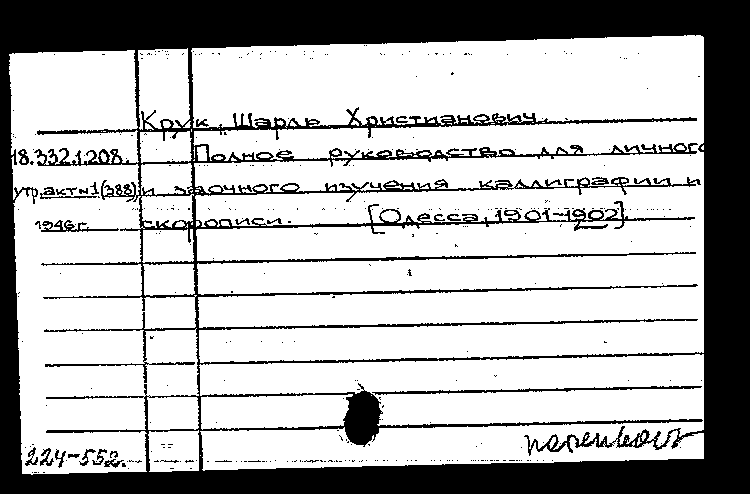 Крук, Шарль Христианович.
18.332.1.208. Полное руководство для личного
утр.акт№1(388) и заочного изучения каллиграфии и
1946г. скорописи. [Одесса, 1901-1902].
224-552.